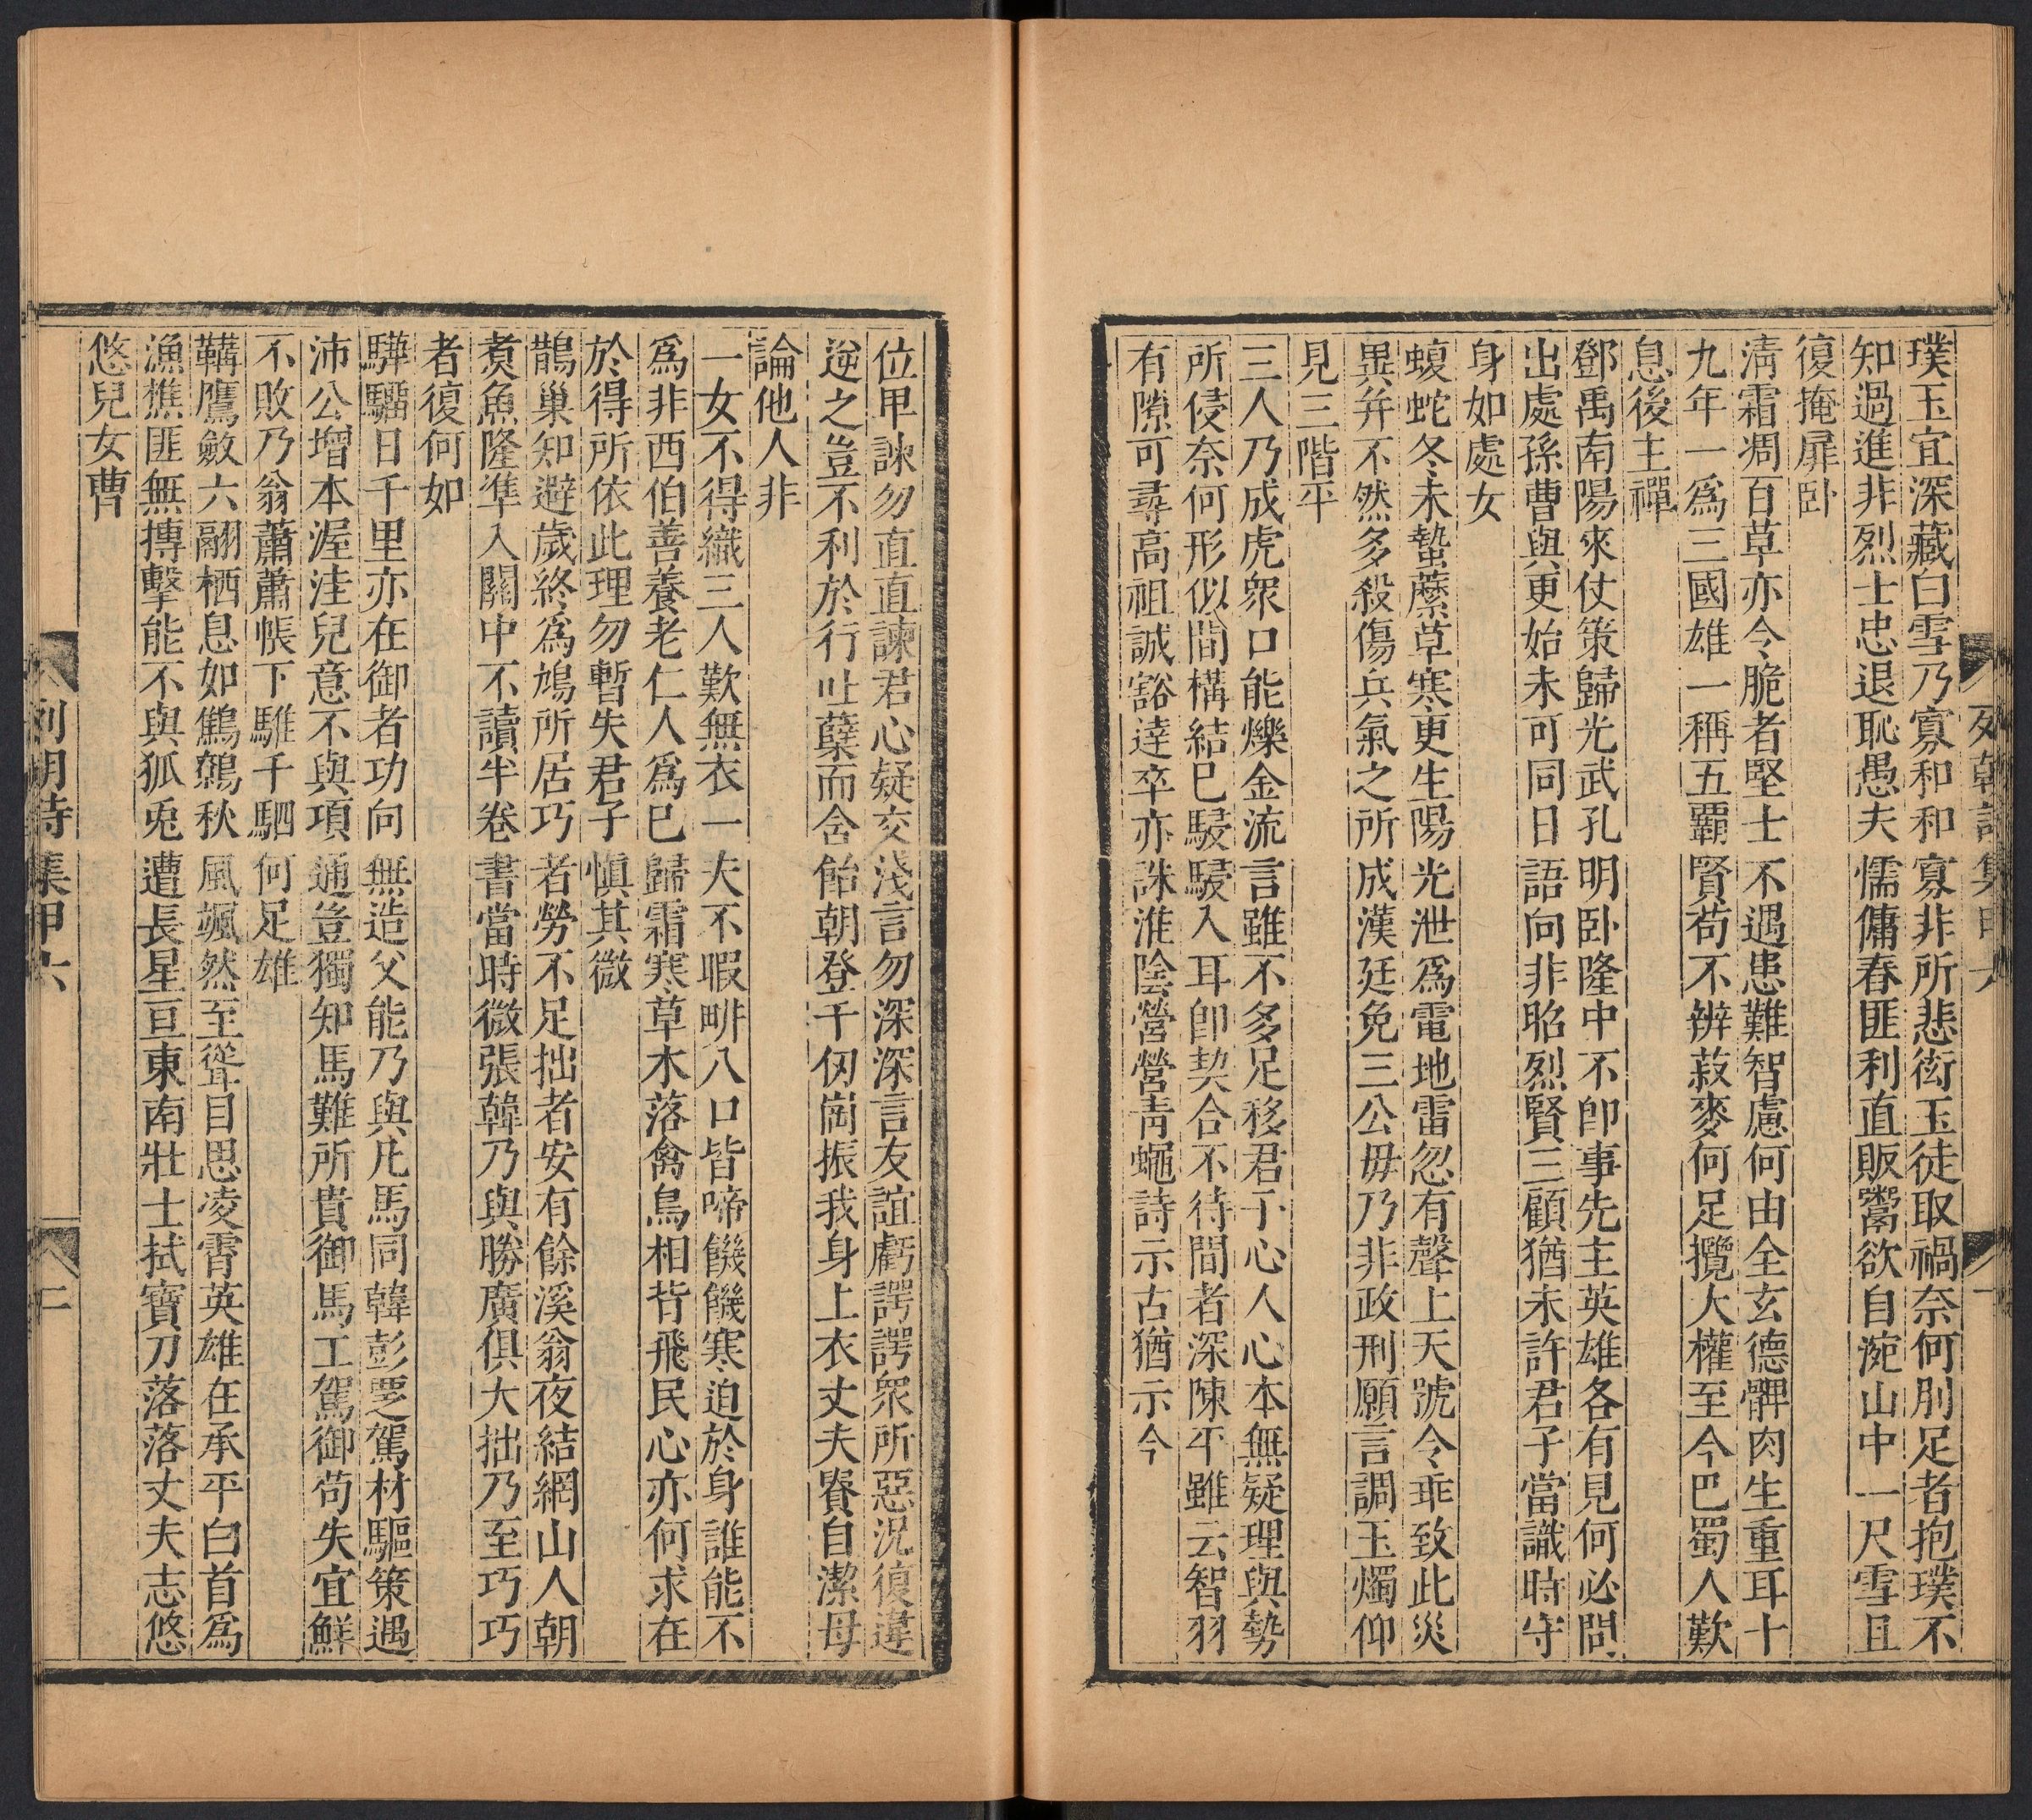 璞玉宜深藏白雪乃寡和和寡非所悲衒玉徒取禍奈何刖足者抱璞不
知過進非烈士忠退恥愚夫懦傭舂匪利直販鬻欲自涴山中一尺雪且
復掩扉卧
清霜凋百草亦令脆者堅士不遇患難智慮何由全玄德髀肉生重耳十
九年一爲三國雄一稱五霸賢苟不辨菽麥何足攬大權至今巴蜀人歎
息後主禪
鄧禹南陽來仗策歸光武孔明卧隆中不卽事先主英雄各有見何必問
出處孫曹與更始未可同日語向非昭烈賢三顧猶未許君子當識時守
身如處女
蝮蛇冬未蟄蘪草寒更生陽光泄爲電地雷忽有聲上天號令乖致此災
異并不然多殺傷兵氣之所成漢廷免三公毋乃非政刑願言調玉燭仰
見三階平
三人乃成虎衆口能爍金流言雖不多足移君子心人心本無疑理與勢
所侵奈何形似間構結巳駸駸入耳卽契合不待間者深陳平雖云智羽
有隙可尋高祖誠豁達卒亦誅淮陰營營靑蠅詩示古猶示今
位甲諫勿直直諫君心疑交淺言勿深深言友誼虧諤諤衆所惡況復違
逆之豈不利於行吐蘗而含飴朝登千仞崗振我身上衣丈夫賚自潔毋
論他人非
一女不得織三人歎無衣一夫不暇畊八口皆啼饑饑寒迫於身誰能不
爲非西伯善養老仁人爲巳歸霜寒草木落禽鳥相背飛民心亦何求在
於得所依此理勿暫失君子愼其微
鵲巢知避歲終爲鳩所居巧者勞不足拙者安有餘溪翁夜結網山人朝
煑魚隆準入關中不讀半卷書當時微張韓乃與勝廣俱大拙乃至巧巧
者復何如
驊騮日千里亦在御者功向無造父能乃與凡馬同韓彭覂駕材驅策遇
沛公增本渥洼兒意不與項通豈獨知馬難所貴御馬工駕御苟失宜鮮
不敗乃翁蕭蕭帳下騅千駟何足雄
鞲鷹斂六翮栖息如鷦鷯秋風颯然至聳目思凌霄英雄在承平白首爲
漁樵匪無搏擊能不與狐兎遭長星亘東南壯士拭寶刀落落丈夫志悠
悠兒女曹
列朝詩集甲六
二